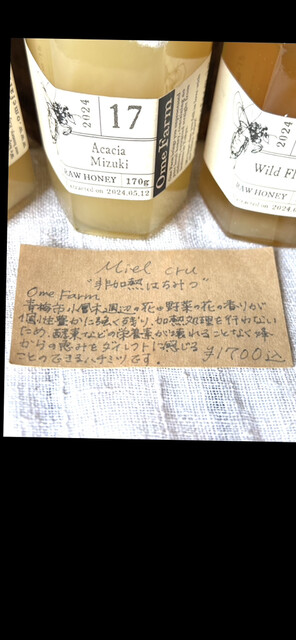 2024
17
Acacia
Mizuki
RAW HONEY 170g
extracted on 2024.05.12
Ome Farm
Wild Fl
RAW HONEY
2024
Miel cru
"非加熱はちみつ"
Ome Farm
青梅市小曾木周辺の花や野菜の花の香りが
個性豊かに強く残り、加熱処理を行わない
ため、酵素などの栄養素が壊れることなく蜂
からの恵みをダイレクトに感じる
ことのできるハチミツです。 ¥1700込